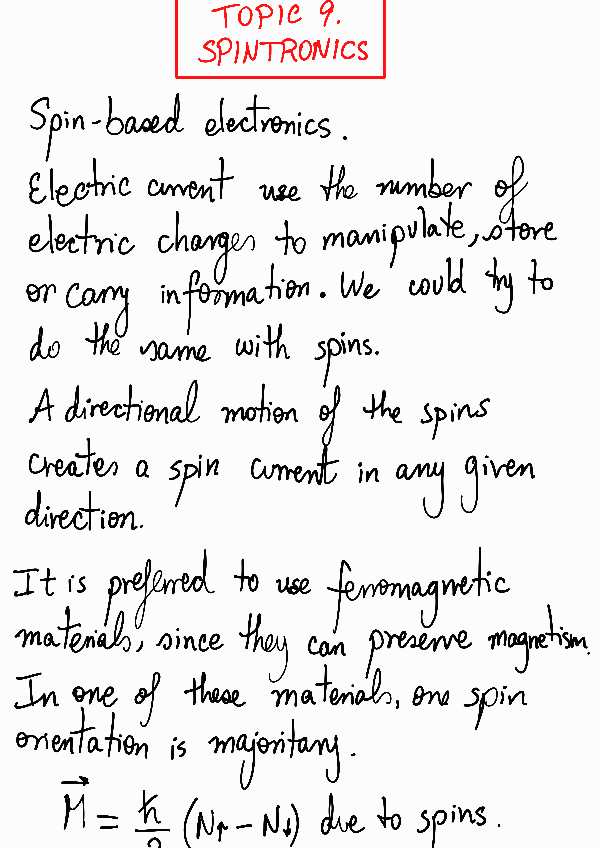 TOPIC 9.
SPINTRONICS
Spin-based electronics.
Electric current use the number of
electric charges to manipulate, store
or carry information. We could try to
do the same with spins.
A directional motion of the spins
creates a spin current in any given
direction.
It is preferred to use ferromagnetic
materials, since they can preserve magnetism.
In one of these materials, one spin
orientation is majoritary.
M⃗ = ℏ/2 (N↑ - N↓) due to spins.